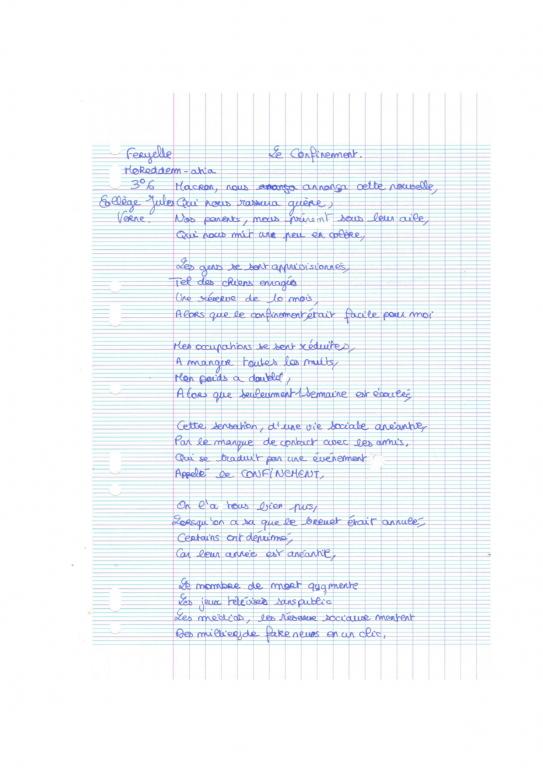 Feryelle
Le Confinement.
Mokeddem-atia
3°6
Macron, nous annonça cette nouvelle,
Collège Jules
Qui nous rassura guère,
Verne.
Nos parents, nous prirent sous leur aile,
Qui nous mit un peu en colère,
Les gens se sont approvisionnés,
Tel des chiens enragés
Une réserve de 10 mois,
Alors que le confinement, était facile pour moi
Mes occupations se sont réduites,
A manger toutes les nuits,
Mon poids a doublé,
Alors que seulement 1 semaine est écoulée,
Cette sensation, d'une vie sociale anéantie,
Par le manque de contact avec les amis,
Qui se traduit par une événement
Appelé le CONFINEMENT,
On l'a tous bien pus,
Lorsqu'on a su que le brevet était annulé,
Certains ont déprimé,
Car leur année est anéantie,
Le nombre de mort augmente
Les jeux télévisés sans public
Les médias, les réseaux sociaux mentent
Des milliers de fake news en un clic,